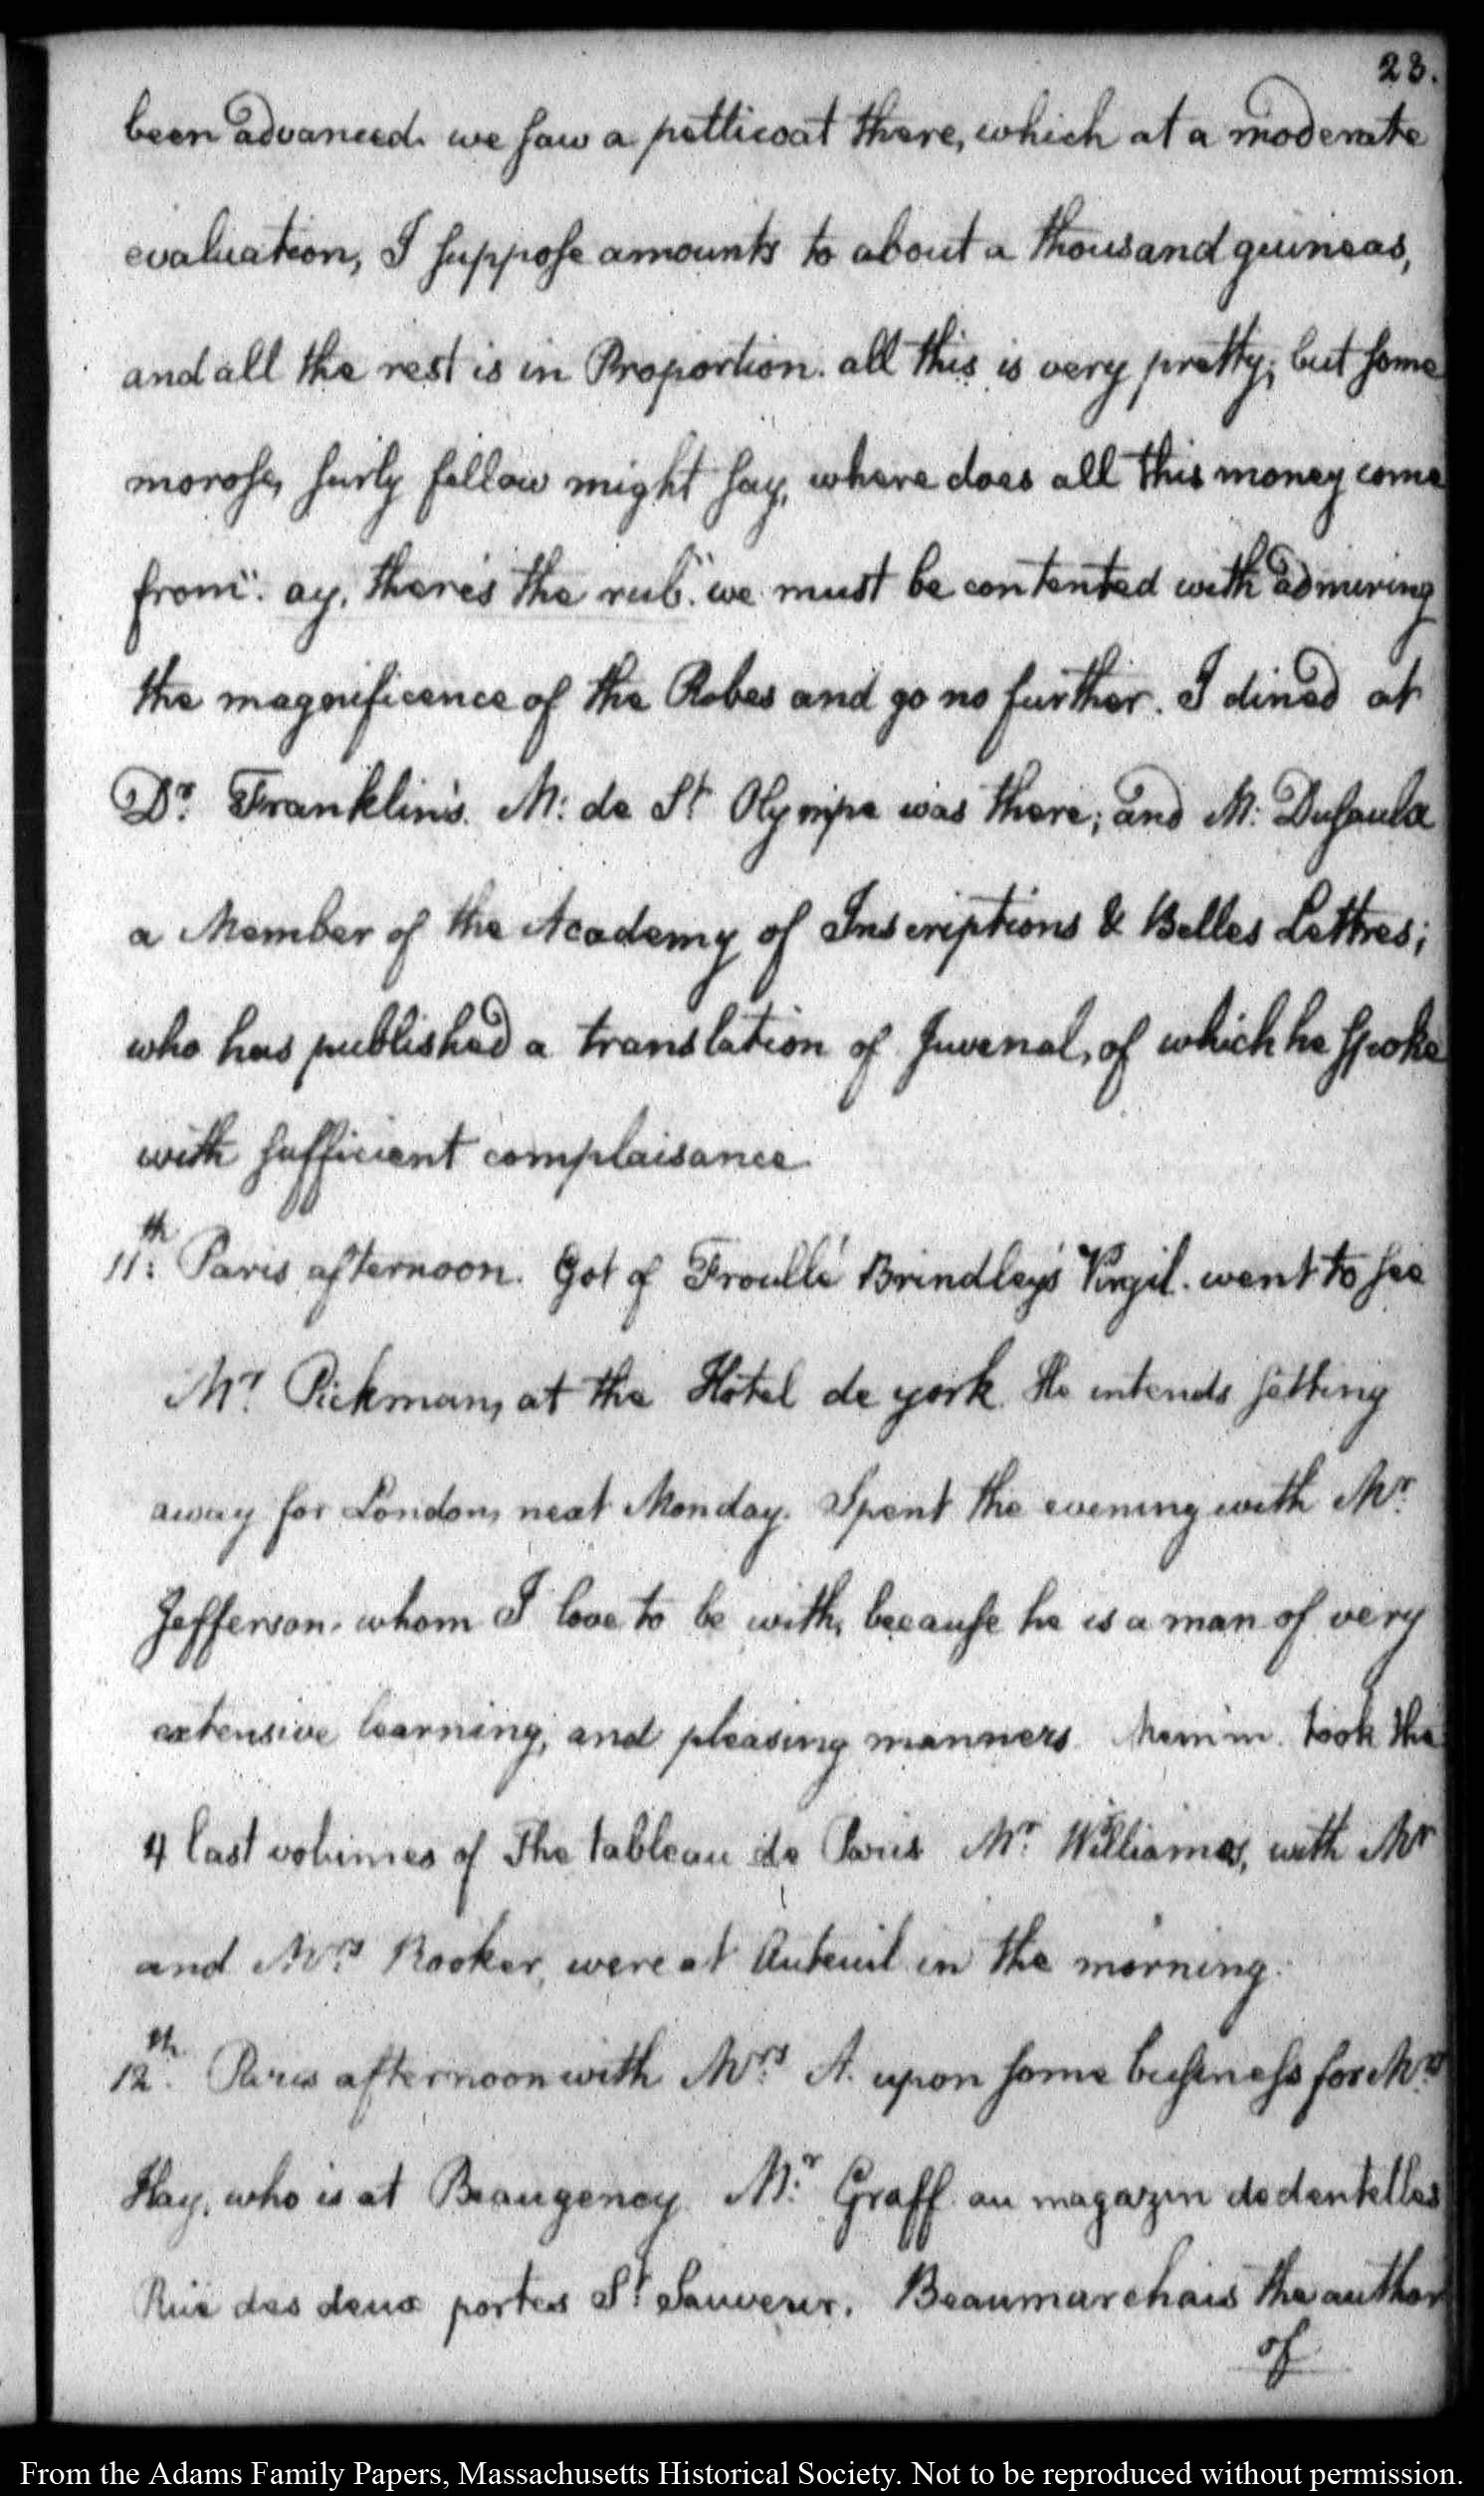 23.
been advanced. we saw a petticoat there, which at a moderate
evaluation, I suppose amounts to about a thousand guineas,
and all the rest is in Proportion. all this is very pretty; but some
morose, surly fellow might say, where does all this money come
from". ay, there's the rub". we must be contented with admiring
the magnificence of the Robes and go no further. I dined at
Dr. Franklin's. M: de St Olympe was there; and M: Dusaulx
a Member of the Academy of Inscriptions & Belles Lettres;
who has published a translation of Juvenal, of which he spoke
with sufficient complaisance.
11th: Paris afternoon. Got of Froullé Brindley's Virgil. went to see
Mr. Pickman, at the Hôtel de york. He intends setting
away for London, next Monday. Spent the evening with Mr.
Jefferson. whom I love to be with, because he is a man of very
extensive learning, and pleasing manners. Mem'm. took the
4 last volumes of The tableau de Paris Mr. Williamos, with Mr
and Mrs Rooker, were at Auteuil in the morning.
12th. Paris afternoon with Mrs. A. upon some business for Mrs
Hay, who is at Beaugency. Mr. Graff au magazin de dentelles
Rue des deux portes St Sauveur. Beaumarchais the author
of
From the Adams Family Papers, Massachusetts Historical Society. Not to be reproduced without permission.